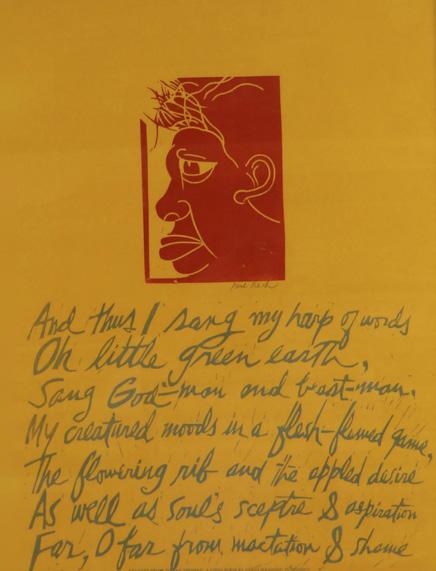 And thus I sang my harp of words
Oh little green earth,
Sang God-man and beast-man.
My creatured moods in a flesh-flumed game,
The flowering rib and the appled desire
As well as soul's sceptre & aspiration
Far, O far from mactation & shame